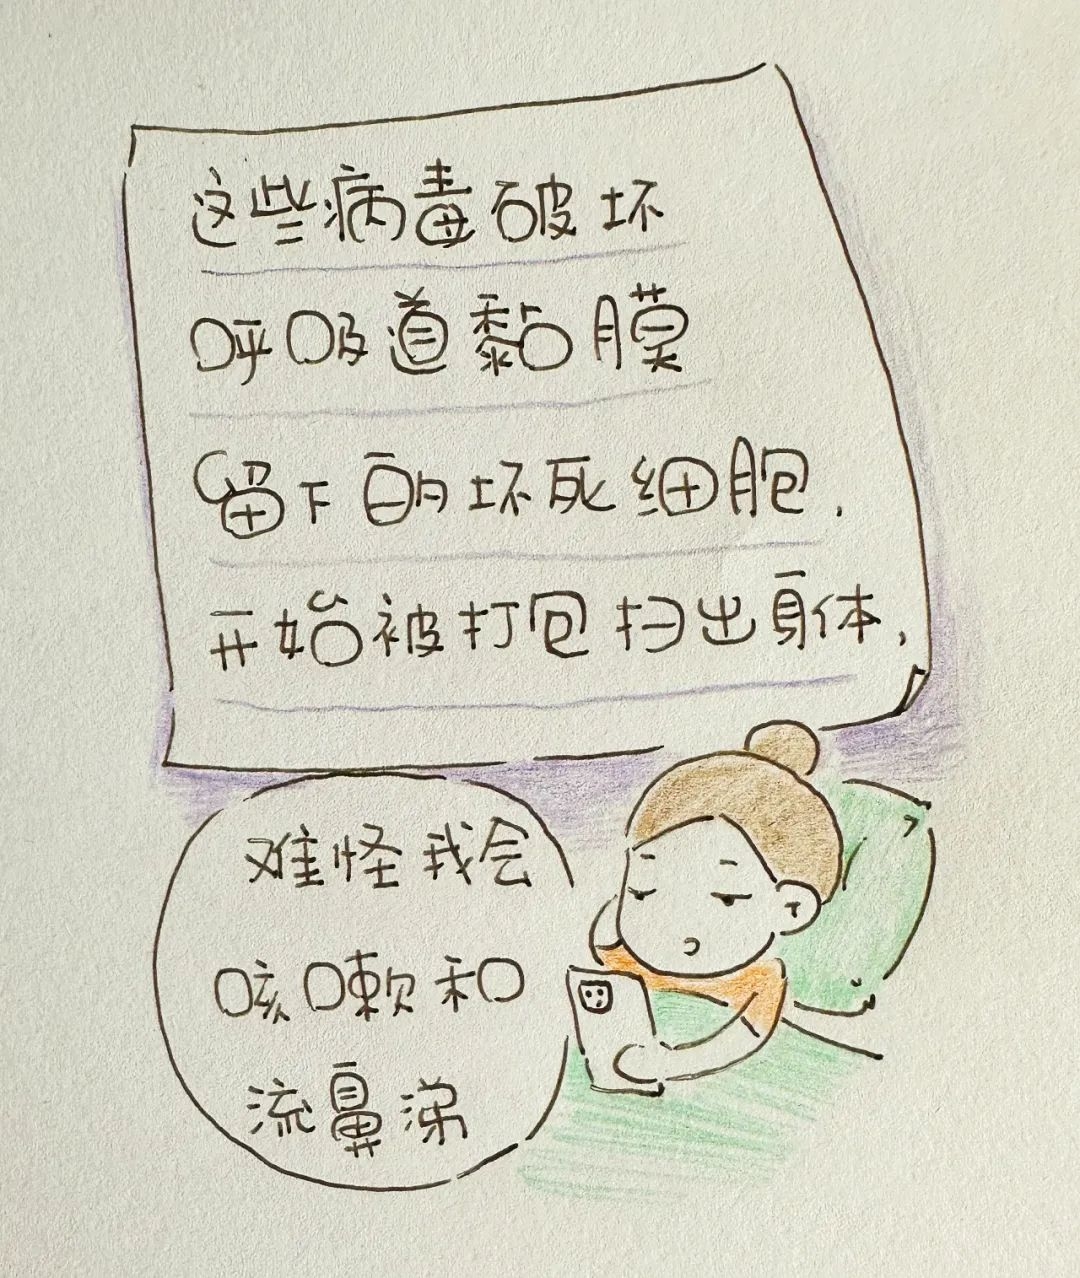 这些病毒破坏
呼吸道黏膜
留下的坏死细胞,
开始被打包扫出身体,
难怪我会
咳嗽和
流鼻涕